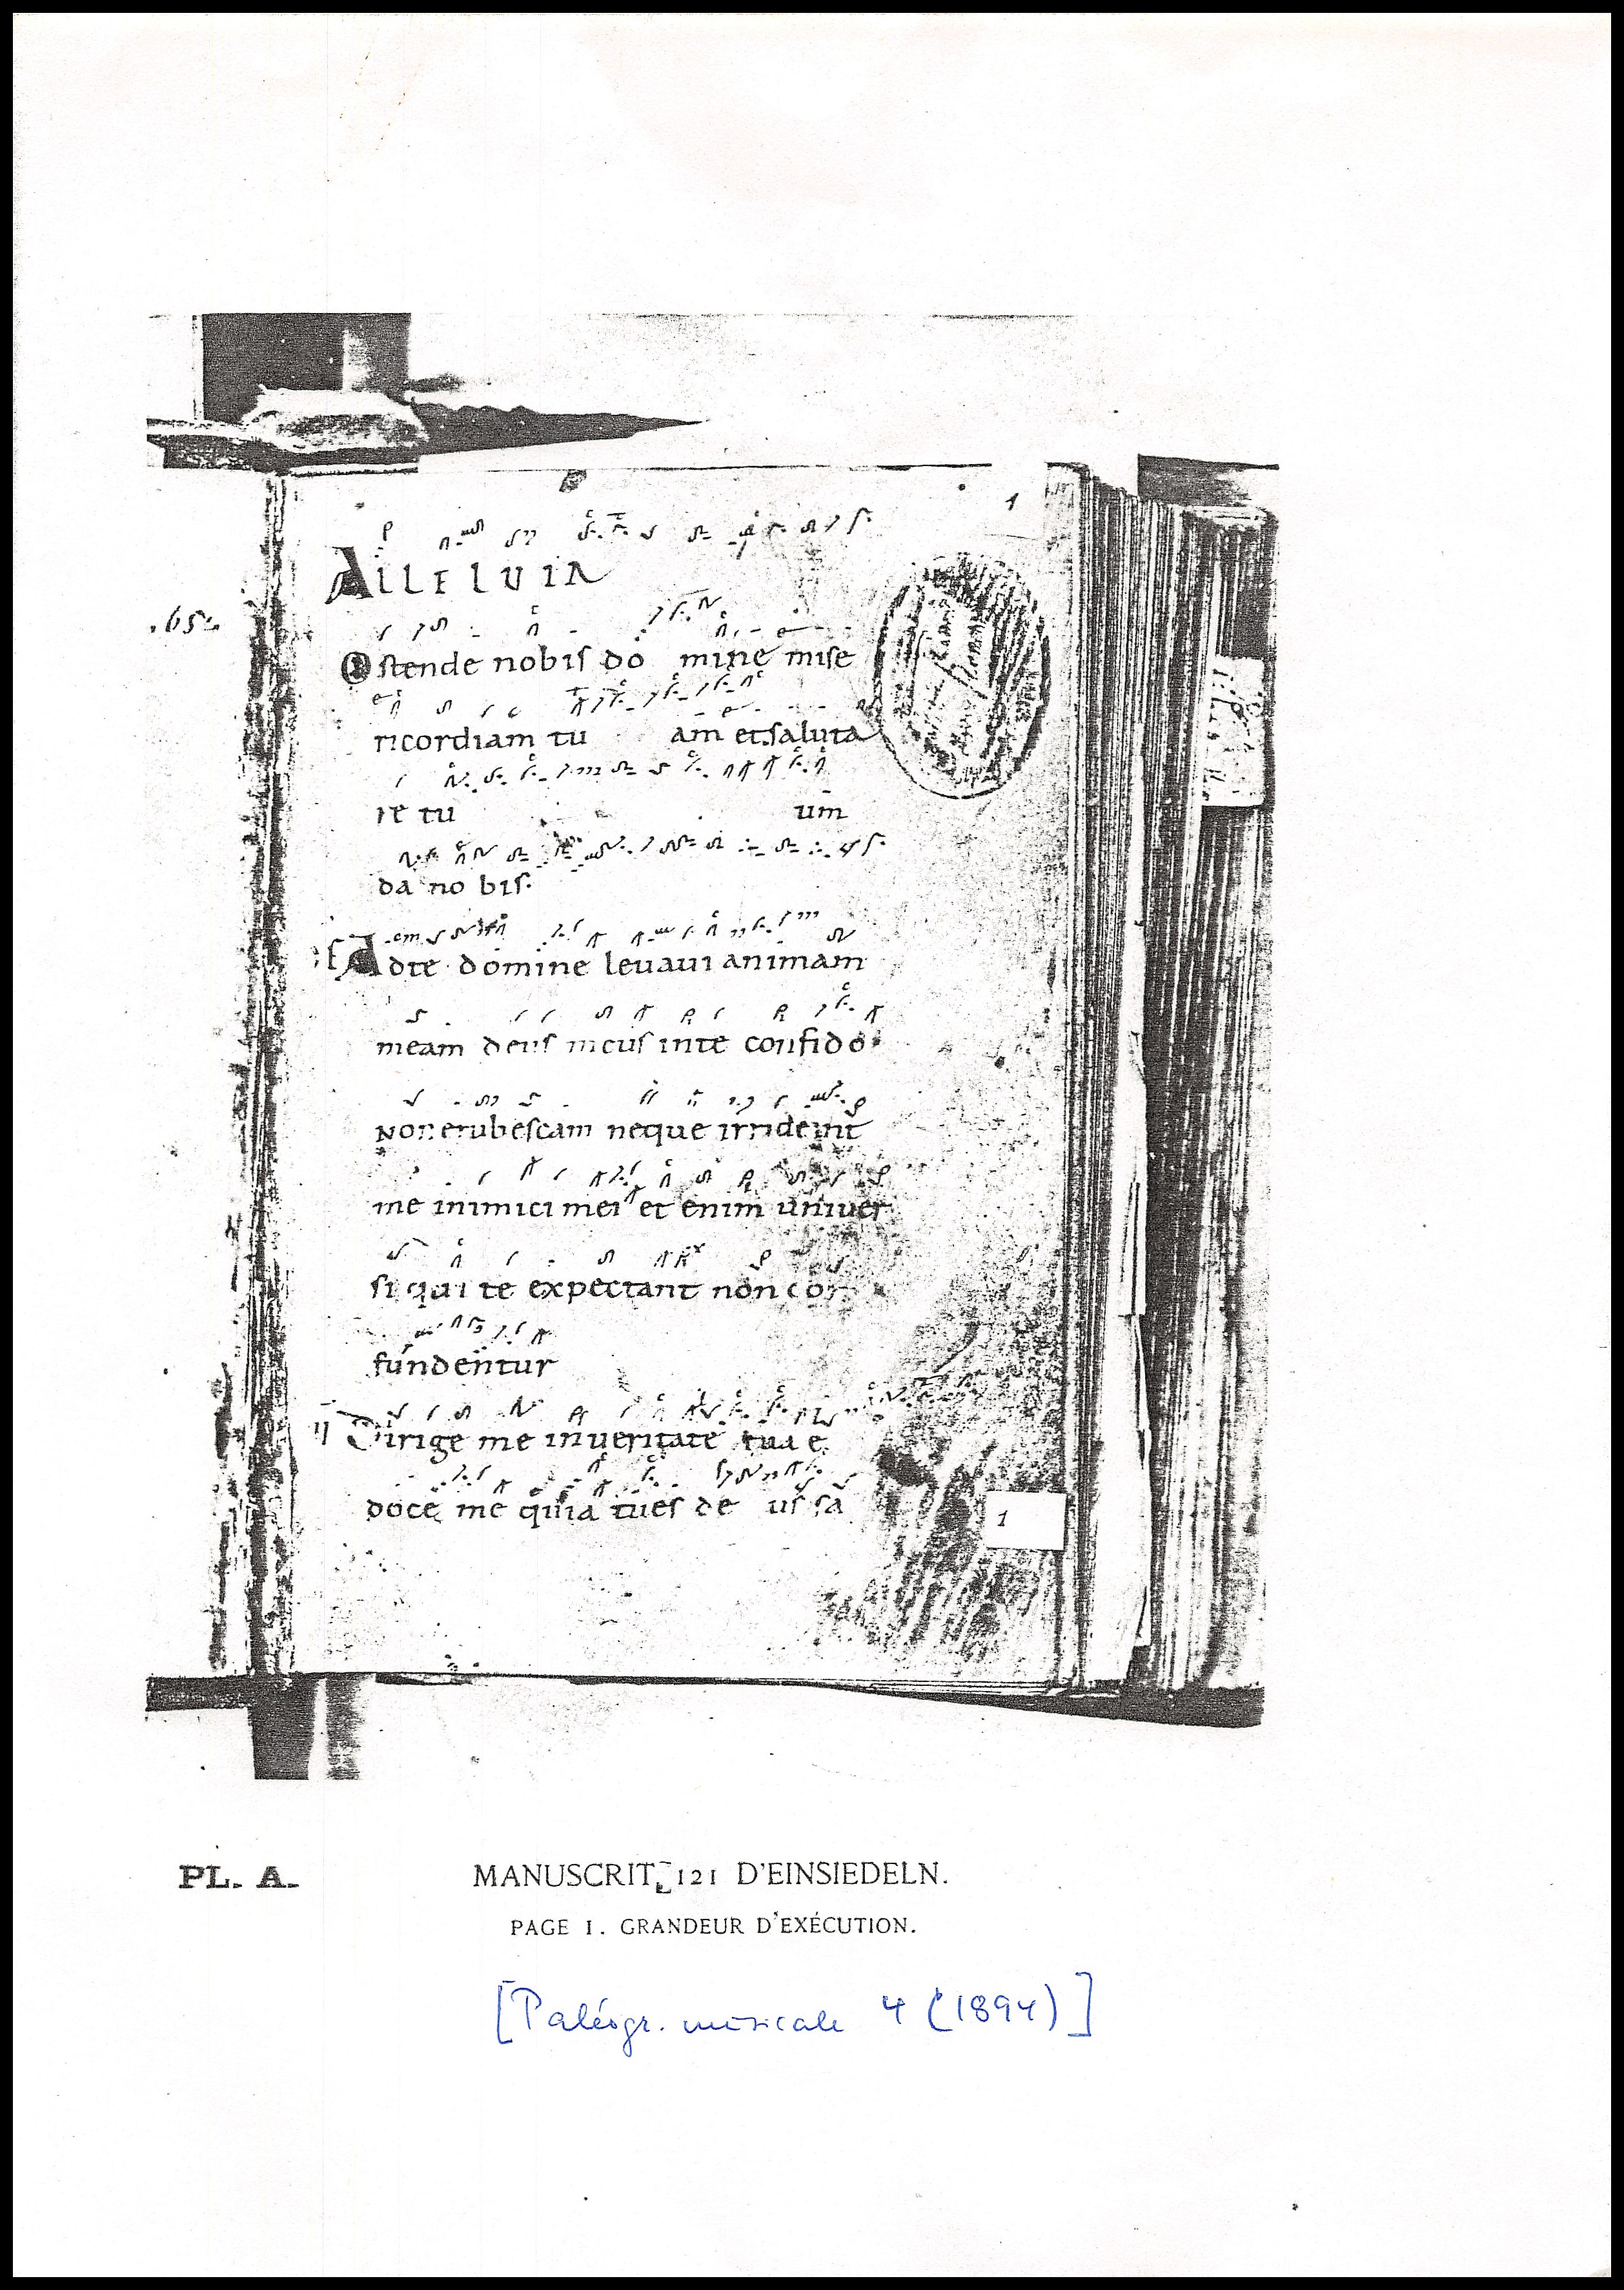 1
Alleluia
.65.
Ostende nobis do mine mise
ricordiam tu am et saluta
re tu um
da no bis.
Adte domine leuaui animam
meam deus meus inte confido
Non erubescam neque irrideant
me inimici mei et enim uniuer
si qui te expectant non con
fundentur
Dirige me inueritate tua e
doce me quia tues de us sa
1
PL. A.
MANUSCRIT 121 D'EINSIEDELN.
PAGE 1. GRANDEUR D'EXÉCUTION.
[Paléogr. musicale 4 (1894)]